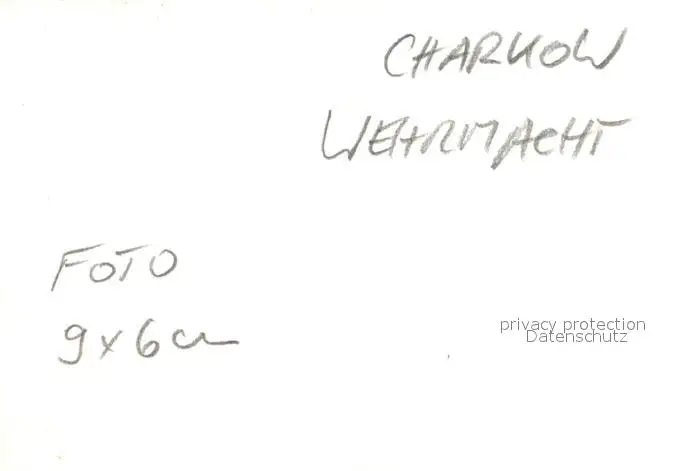 CHARKOW
WEHRMACHT
FOTO
9x6cm
privacy protection
Datenschutz